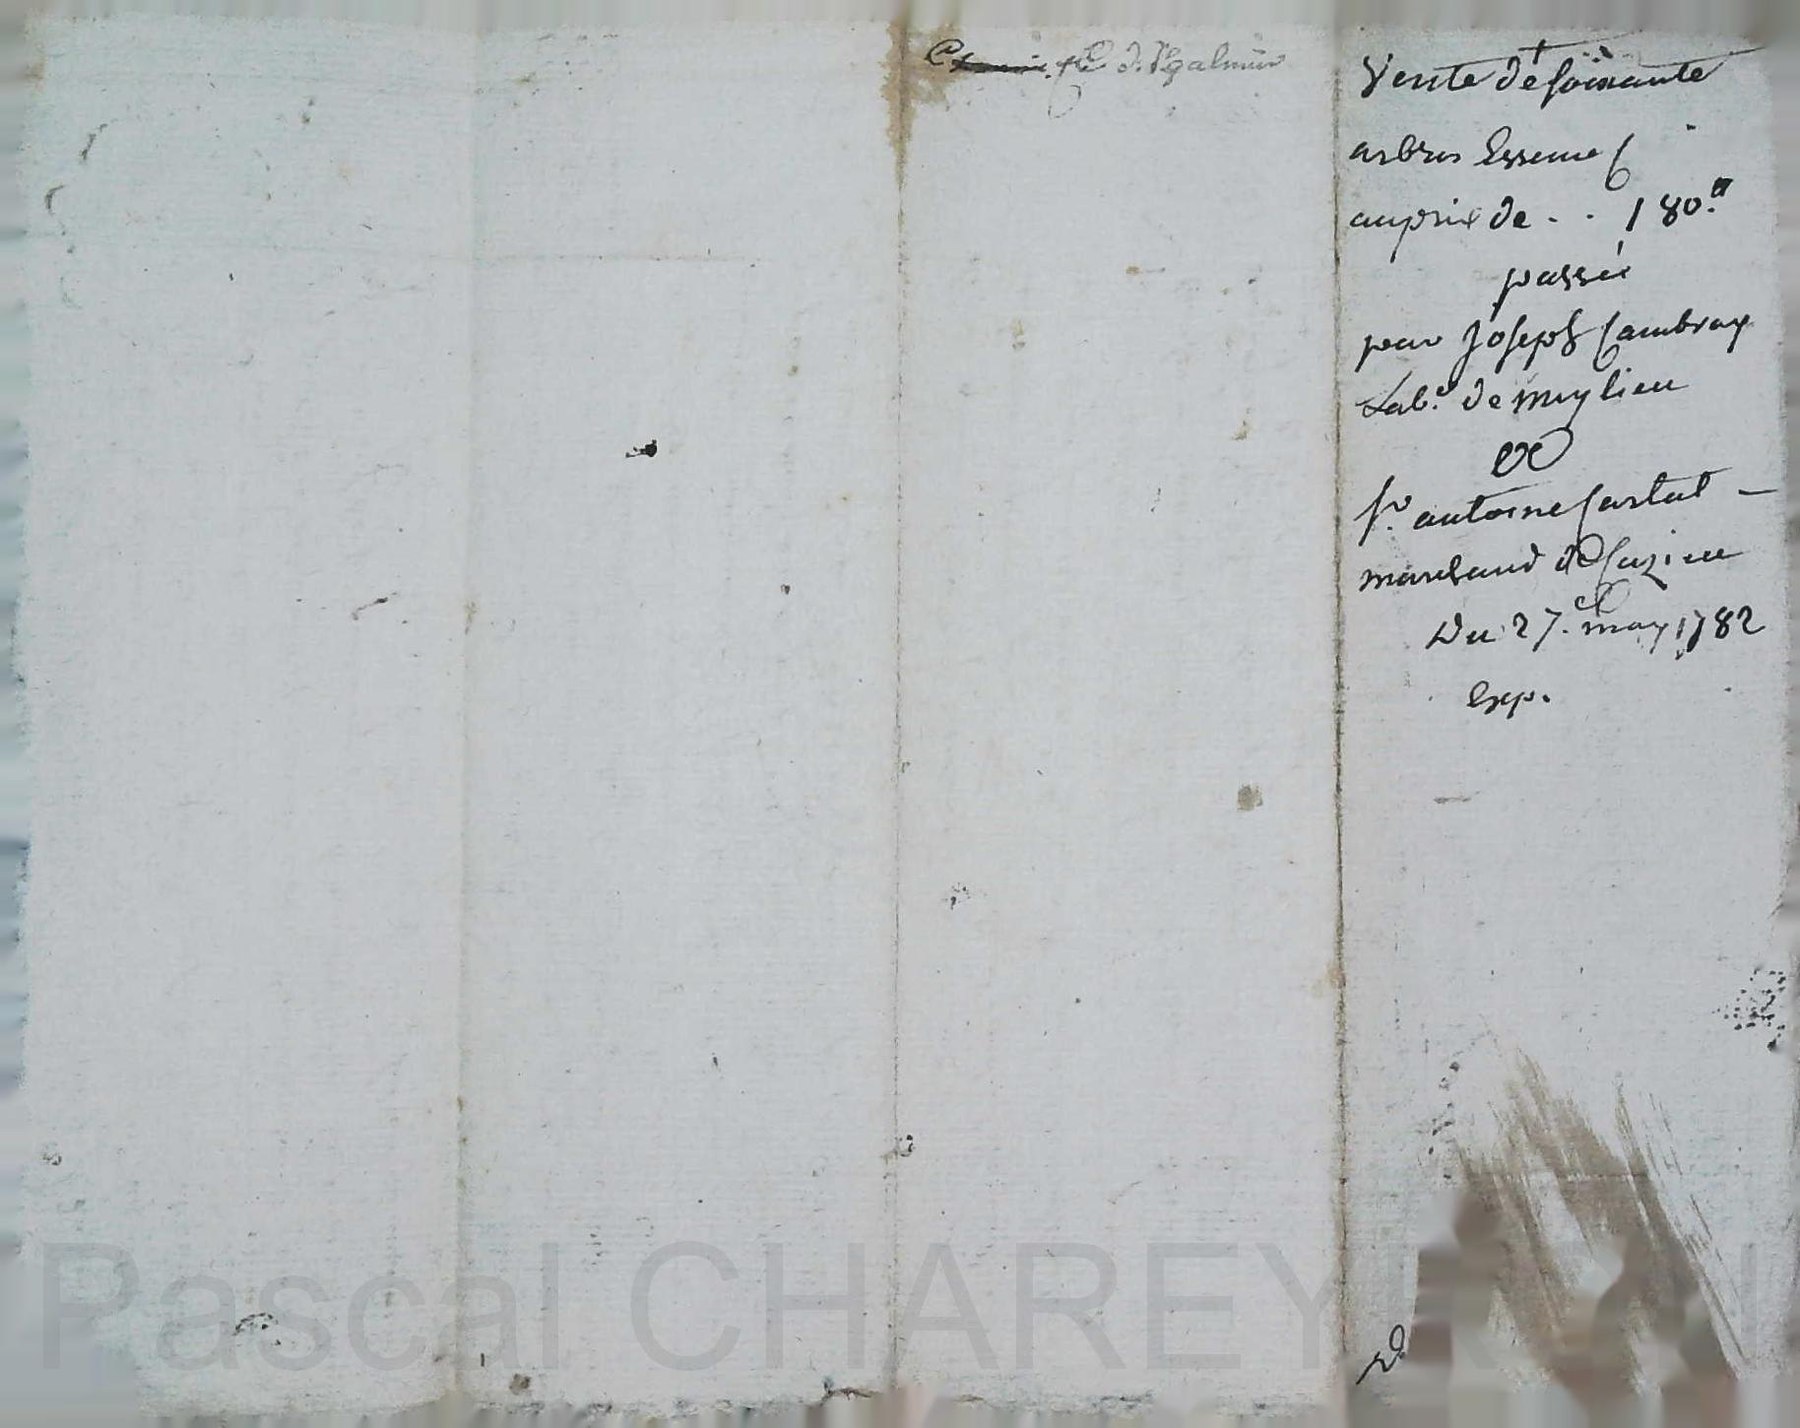 C. de St galmier
Vente de soixante
arbres Essence
au prix de . . 180.ᵗᵗ
passée
par Joseph Cambray
Lab.r de meylieu
et
Sr. antoine Castat -
marchand de Cuzieu
Du 27.e may 1782
Exp.
Pascal CHAREYRON